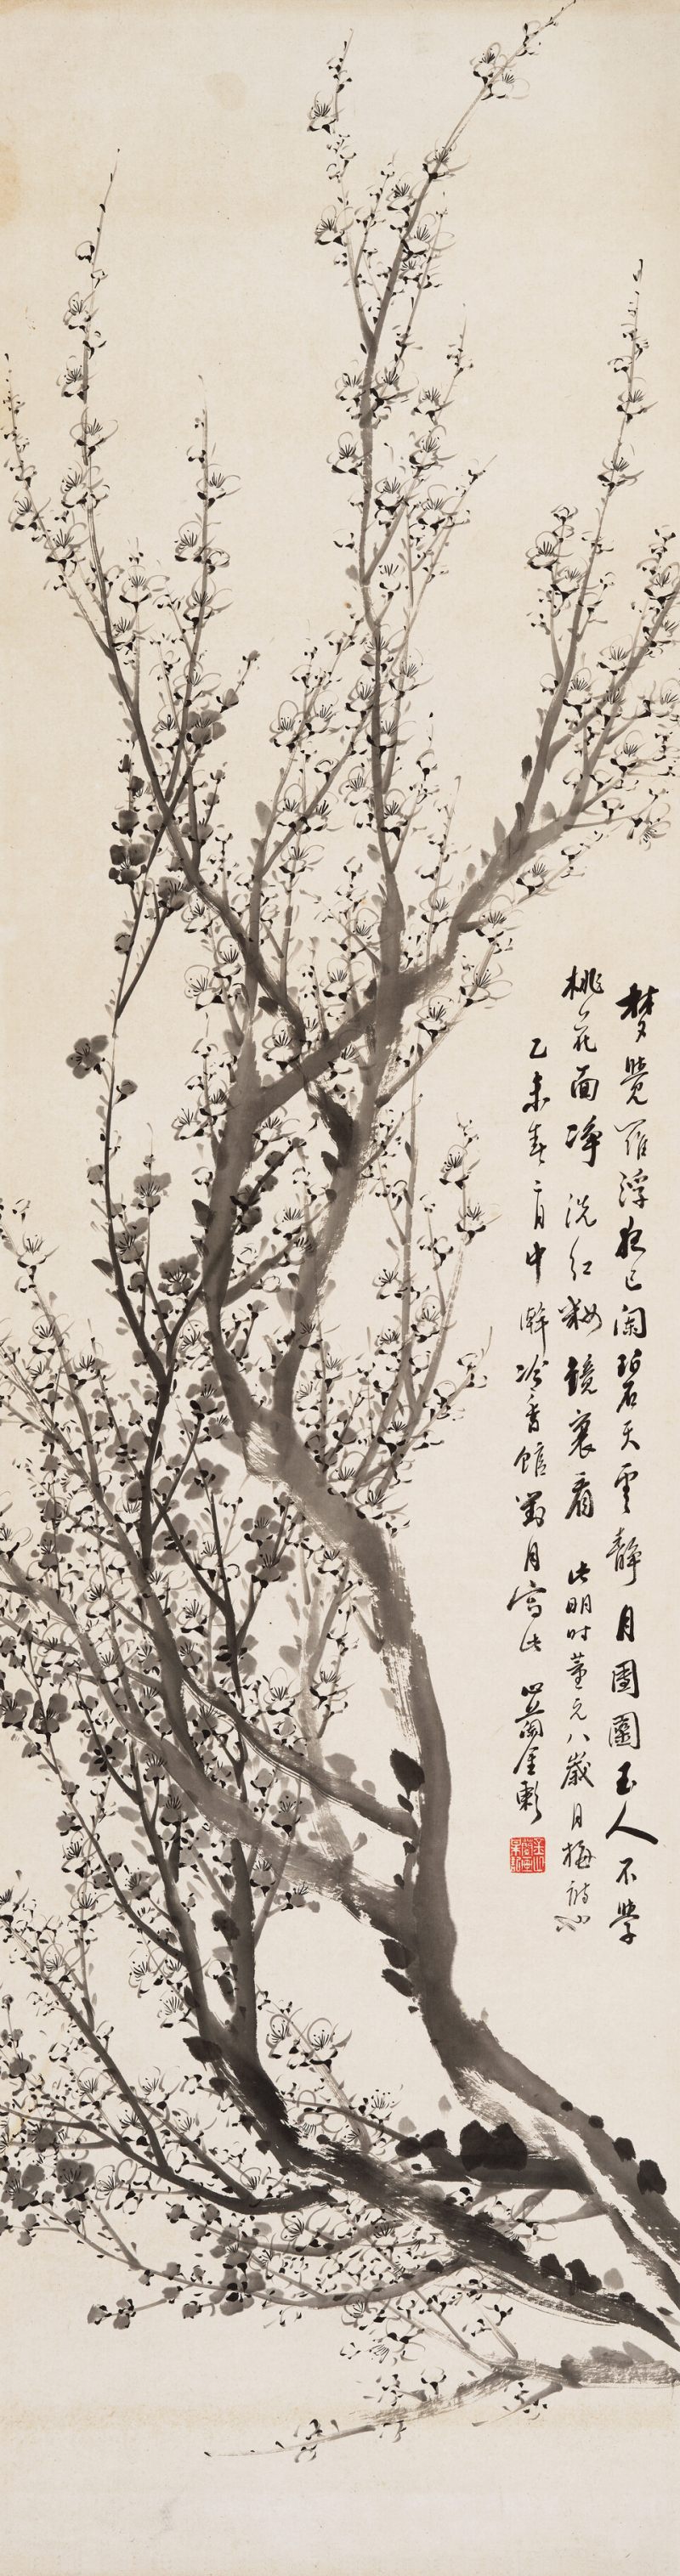 梦觉罗浮夜已阑碧天云静月团圞玉人不学
桃花面净洗红妆镜里看 此明时董元八岁月梅诗也
乙未春二月中澣冷香馆对月写此 心兰金彰